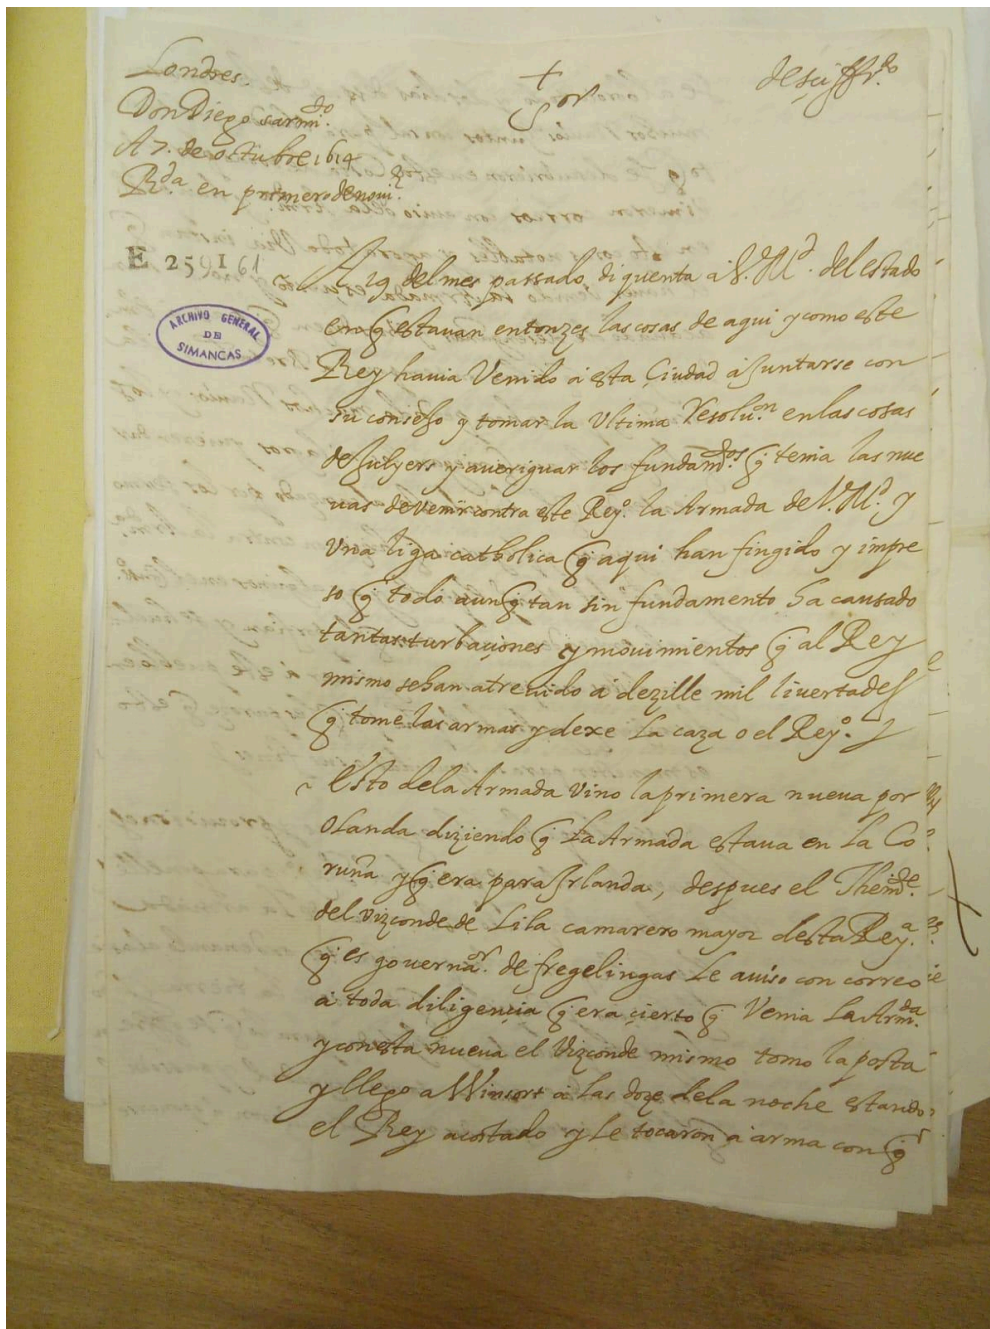 Londres.
Don Diego sarmi.do
A 7. de octubre 1614
R.da en primero de
+
Sor
descifr.do
E 2591 61
ARCHIVO GENERAL
DE
SIMANCAS
A 19 del mes passado di quenta a V. Md. del estado
en q estavan entonzes las cosas de aqui y como este
Rey havia Venido a esta Ciudad a Juntarse con
su consejo y tomar la Ultima Resoluon en las cosas
de Julyers y averiguar los fundamdos q tenia las nue
vas de venir contra este Rey.o la Armada de V. Md. y
Una liga catholica q aqui han fingido y impre
so q todo aunq tan sin fundamento ha causado
tantas turbaçiones y movimientos q al Rey
mismo se han atrevido a dezille mil livertades
q tome las armas y dexe la caza o el Rey.o
Esto de la Armada vino la primera nueva por
Olanda diziendo q la Armada estava en la Co
ruña y q era para Irlanda, despues el Thende
del vizconde de Lila camarero mayor desta Rey.a
q es governaor de fregelingas Le aviso con correo
a toda diligençia q era çierto q Venia La Armda
y con esta nueva el Vizconde mismo tomo la posta
y llego a Winsort a las doze de la noche estando
el Rey acostado y le tocaron a arma con q